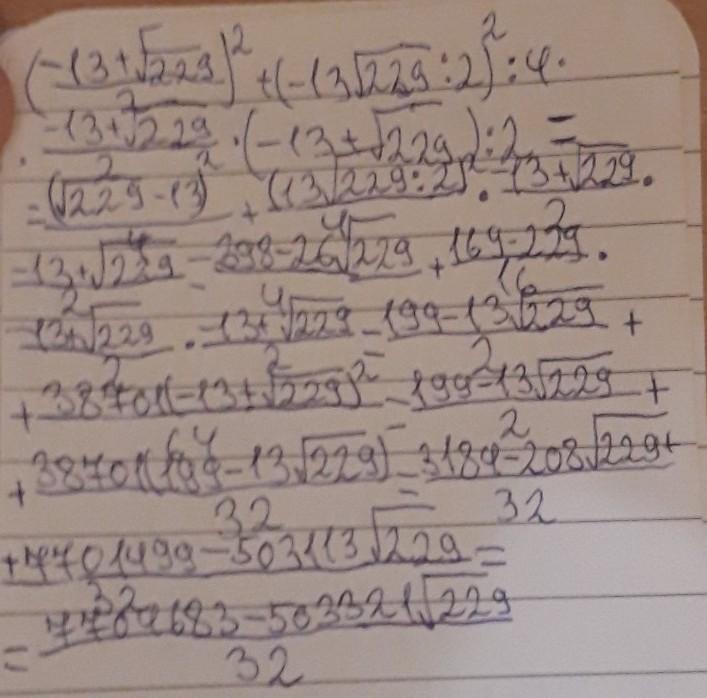 (-13+√229/2)² + (-13√229:2)²:4·
· -13+√229/2 · (-13+√229):2 =
= (√229-13)²/4 + (13√229:2)²/4 · -13+√229/2 ·
-13+√229/2 = 398-26√229/4 + 169·229/16 ·
-13+√229/2 · -13+√229/2 = 199-13√229/2 +
+ 38701(-13+√229)²/64 = 199-13√229/2 +
+ 38701(199-13√229)/32 = 3184-208√229+/32
+ 7701499-503113√229/32 =
= 7704683-503321√229/32